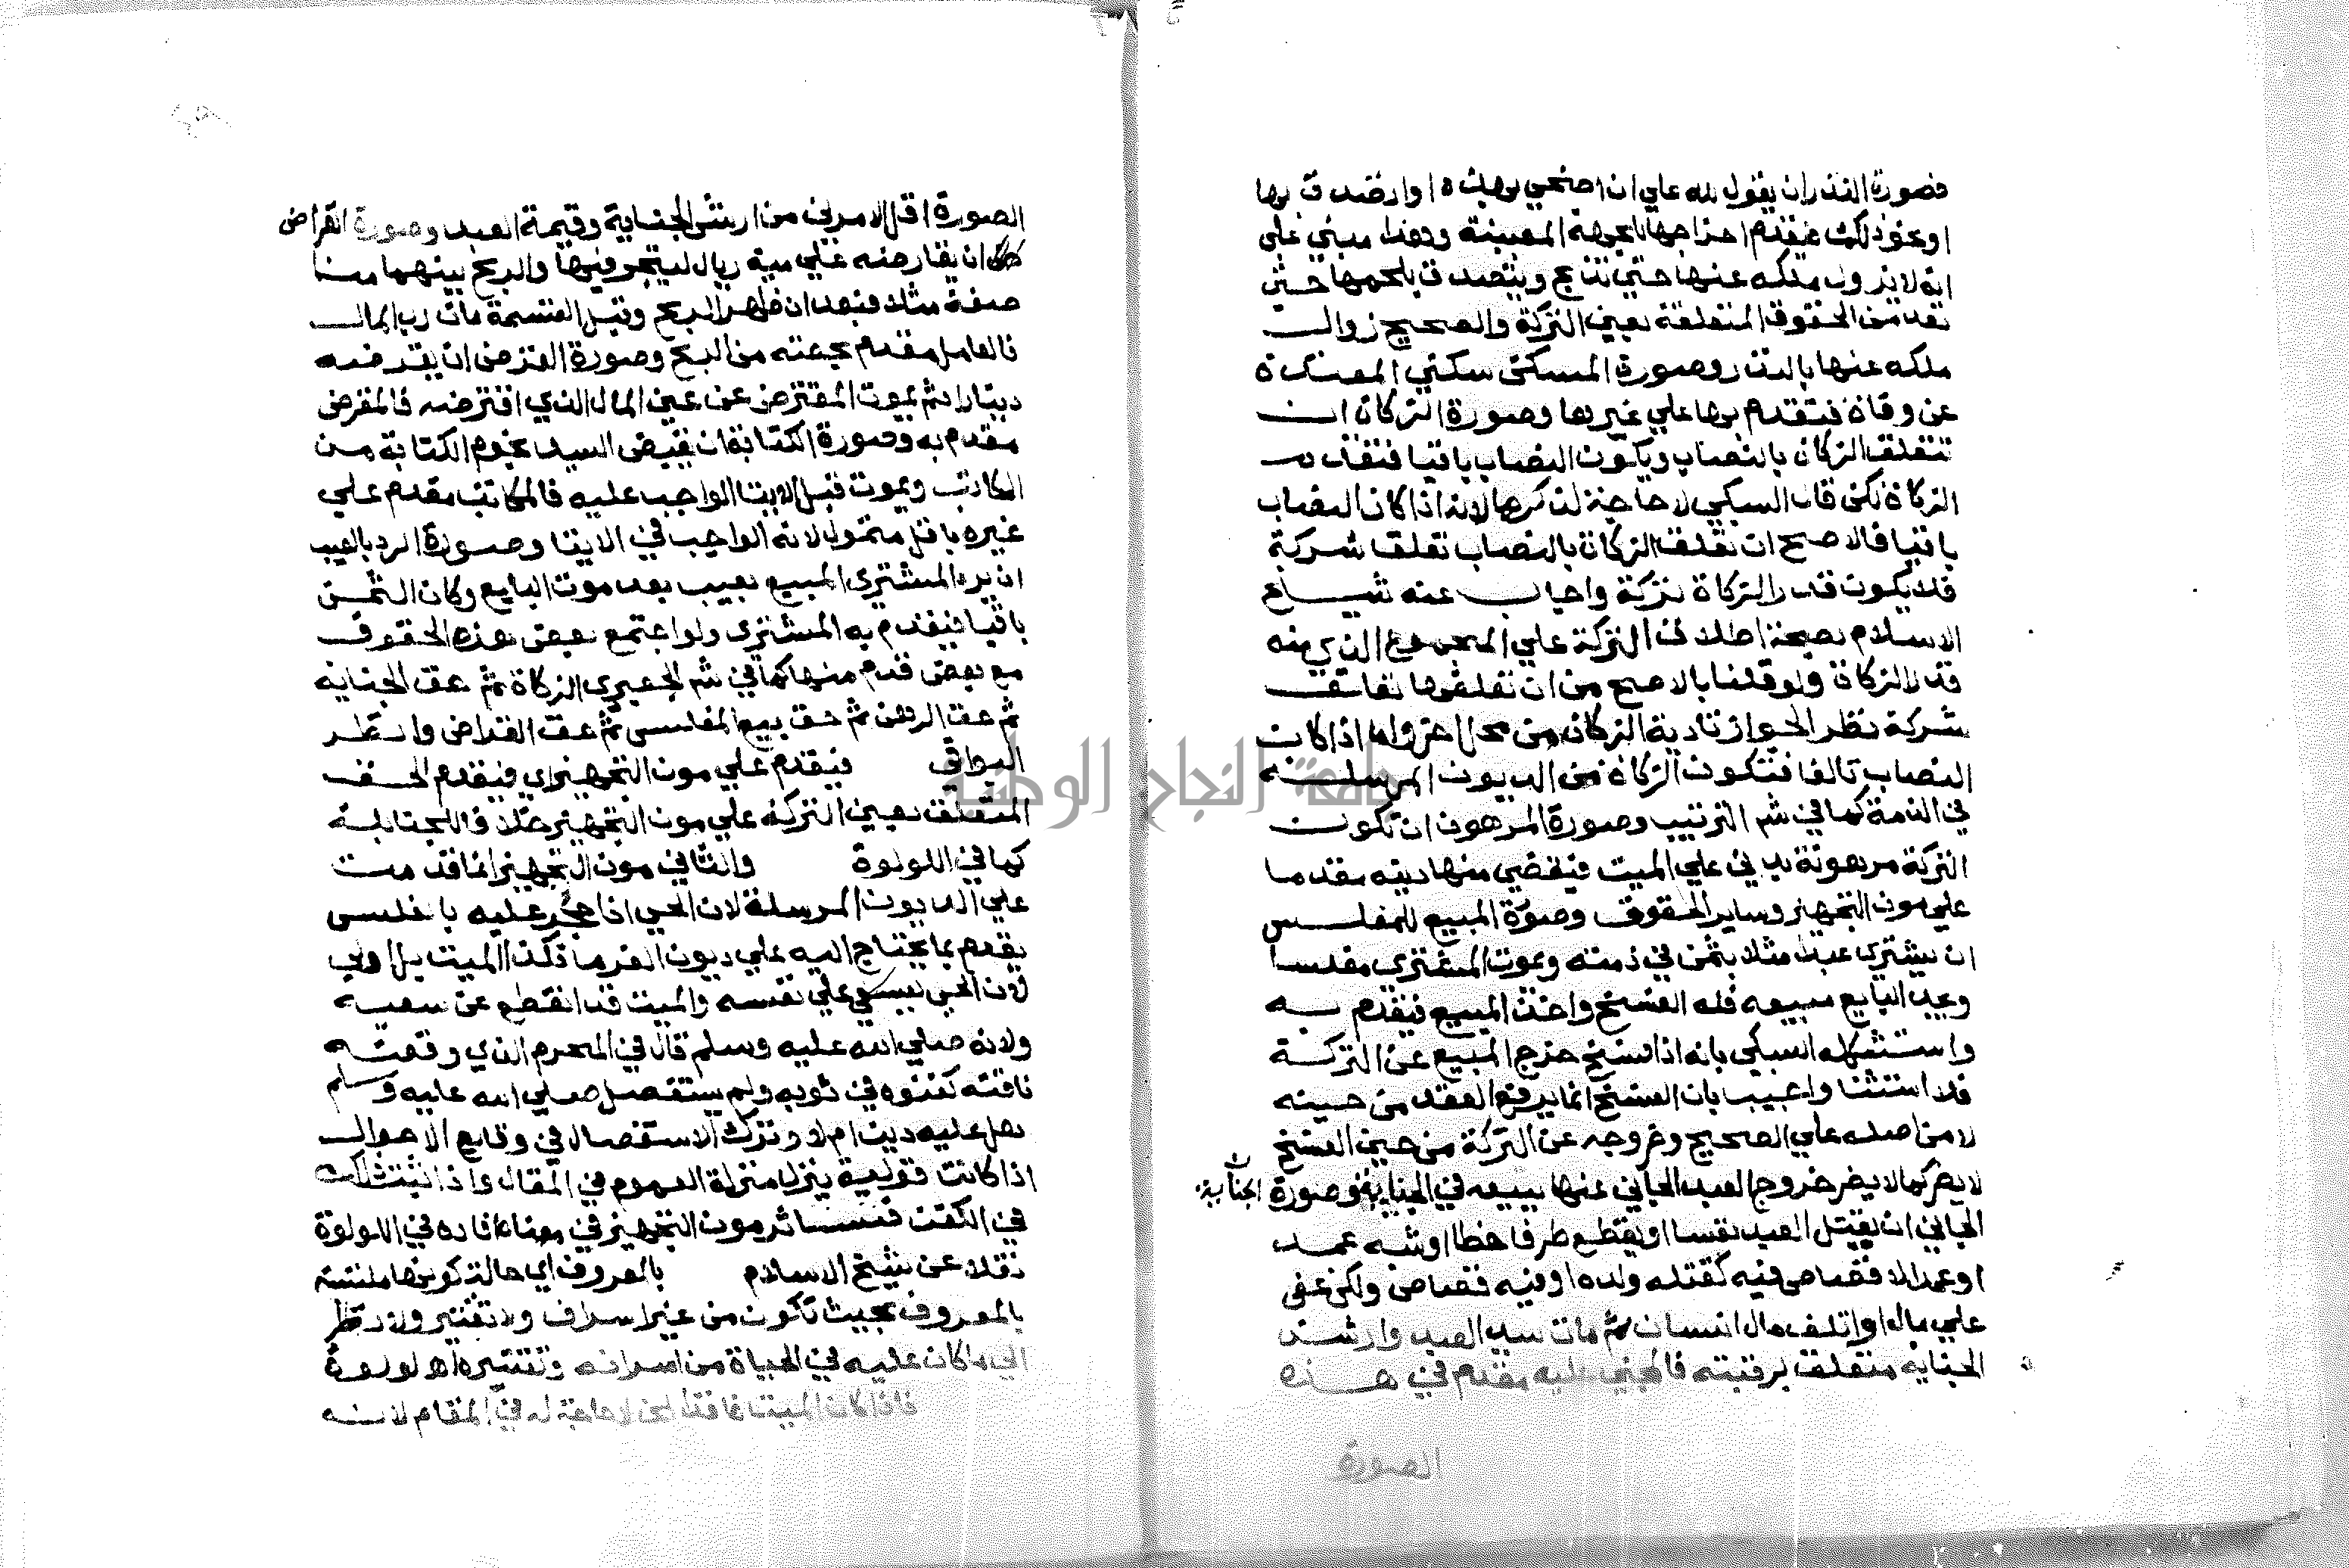 فصورة النذر ان يقول لله علي ان اضحي بهذه او اتصدق بها
او نحو ذلك فيقدم اخراجها بالجهة المعينة وهذا مبني علي
انه لا يزول ملكه عنها حتي تذبح ويتصدق بلحمها حتي
تعد من الحقوق المتعلقة بعين التركة والصحيح زوال
ملكه عنها بالنذر وصورة السكني سكني المعتدة
عن وفاة فيتقدم بها علي غيرها وصورة الزكاة ان
تتعلق الزكاة بالنصاب ويكون النصاب باقيا فتقدم
الزكاة لكن قال السبكي لا حاجة لذكرها لانه اذا كان النصاب
باقيا فالاصح ان تعلق الزكاة بالنصاب تعلق شركة
فلا يكون قدر الزكاة تركة واجاب عنه شيخ
الاسلام بصحة اطلاق التركة علي المجموع الذي منه
قدر الزكاة ولو قلنا بالاصح من ان تعلقها تعلق
شركة نظر الجواز تادية الزكاة من محل اخر واما اذا كان
النصاب تالفا فتكون الزكاة من الديون المرسلة
في الذمة كما في ش الترتيب وصورة المرهون ان تكون
التركة مرهونة بدين علي الميت فيقضي منها دينه مقدما
علي مون التجهيز وساير الحقوق وصورة المبيع للمفلس
ان يشتري عبدا مثلا بثمن في ذمته ويموت المشتري مفلسا
ويجد البايع مبيعه فله الفسخ واخذ المبيع فيقدم به
واستشكله السبكي بانه اذا فسخ خرج المبيع عن التركة
فلا استثنا واجيب بان الفسخ انما يرفع العقد من حينه
لا من اصله علي الصحيح وخروجه عن التركة من حين الفسخ
لا يضر كما لا يضر خروج العبد الجاني عنها ببيعه في الجناية وصورة الجناية
الجاني ان يقتل العبد نفسا او يقطع طرفا خطا او شبه عمد
او عمدا لا قصاص فيه كقتله ولده او فيه قصاص ولكن عفي
علي مال او اتلف مال انسان ثم مات سيد العبد وارش
الجناية متعلق برقبته فالمجني عليه مقدم في هذه
الصورة
الصورة باقل الامرين من ارش الجناية وقيمة العبد وصورة القراض
ان يقارضه علي مية ريال ليتجر فيها والربح بينهما منا
صفة مثلا فبعد ان ظهر الربح وقبل القسمة مات رب المال
فالعامل مقدم بحصته من الربح وصورة القرض ان يقرضه
دينارا ثم يموت المقترض عن عين المال الذي اقترضه فالمقرض
مقدم به وصورة الكتابة ان يقبض السيد نجوم الكتابة من
المكاتب ويموت قبل الايتا الواجب عليه فالمكاتب مقدم علي
غيره باقل متمول لانه الواجب في الايتا وصورة الرد بالعيب
ان يرد المشتري المبيع بعيب بعد موت البايع وكان الثمن
باقيا فيقدم به المشتري ولو اجتمع بعض هذه الحقوق
مع بعض قدم منها كما في ش الجعبري الزكاة ثم حق الجناية
ثم حق الرهن ثم حق بيع المفلس ثم حق القراض وانظر
البواقي فيقدم علي مون التجهيز اي فيقدم الحق
المتعلق بعين التركة علي مون التجهيز خلافا للحنابلة
كما في اللولوة والثاني مون التجهيز انما قدمت
علي الديون المرسلة لان الحي اذا حجر عليه بالفلس
يقدم بما يحتاج اليه علي ديون الغرما فكذا الميت بل اولي
لان الحي يسعي علي نفسه والميت قد انقطع عن سعيه
ولانه صلي الله عليه وسلم قال في المحرم الذي وقصته
ناقته كفنوه في ثوبه ولم يستفصل صلي الله عليه وسلم
هل عليه دين ام لا وترك الاستفصال في وقايع الاحوال
اذا كانت قولية ينزل منزلة العموم في المقال واذا ثبت ذلك
في الكفن فساير مون التجهيز في معناه افاده في اللولوة
نقلا عن شيخ الاسلام بالمعروف اي حالة كونها ملتبسة
بالمعروف بحيث تكون من غير اسراف ولا تقتير ولا نظر
الي ما كان عليه في الحياة من اسرافه وتقتيره اه لولوة